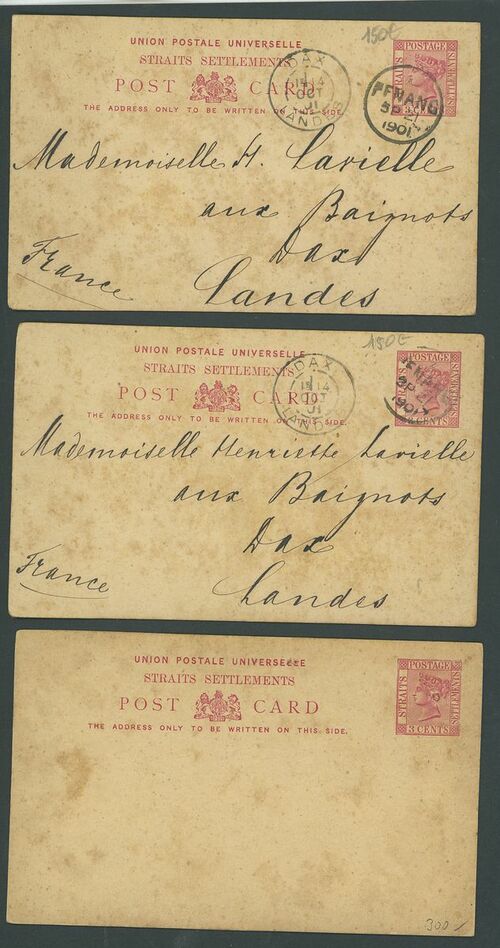 150€
UNION POSTALE UNIVERSELLE
STRAITS SETTLEMENTS
POST CARD
THE ADDRESS ONLY TO BE WRITTEN ON THIS SIDE.
DAX
14
OCT
01
LANDES
STRAITS
POSTAGE
SETTLEMENTS
PENANG
SP 21
1901
Mademoiselle H. Lavielle
aux Baignots
Dax
France
Landes
150€
UNION POSTALE UNIVERSELLE
STRAITS SETTLEMENTS
POST CARD
THE ADDRESS ONLY TO BE WRITTEN ON THIS SIDE.
DAX
14
01
LANDES
STRAITS
POSTAGE
SETTLEMENTS
CENTS
PENANG
SP 21
1901
Mademoiselle Henriette Lavielle
aux Baignots
Dax
France
Landes
UNION POSTALE UNIVERSELLE
STRAITS SETTLEMENTS
POST CARD
THE ADDRESS ONLY TO BE WRITTEN ON THIS SIDE.
STRAITS
POSTAGE
SETTLEMENTS
3 CENTS
300/